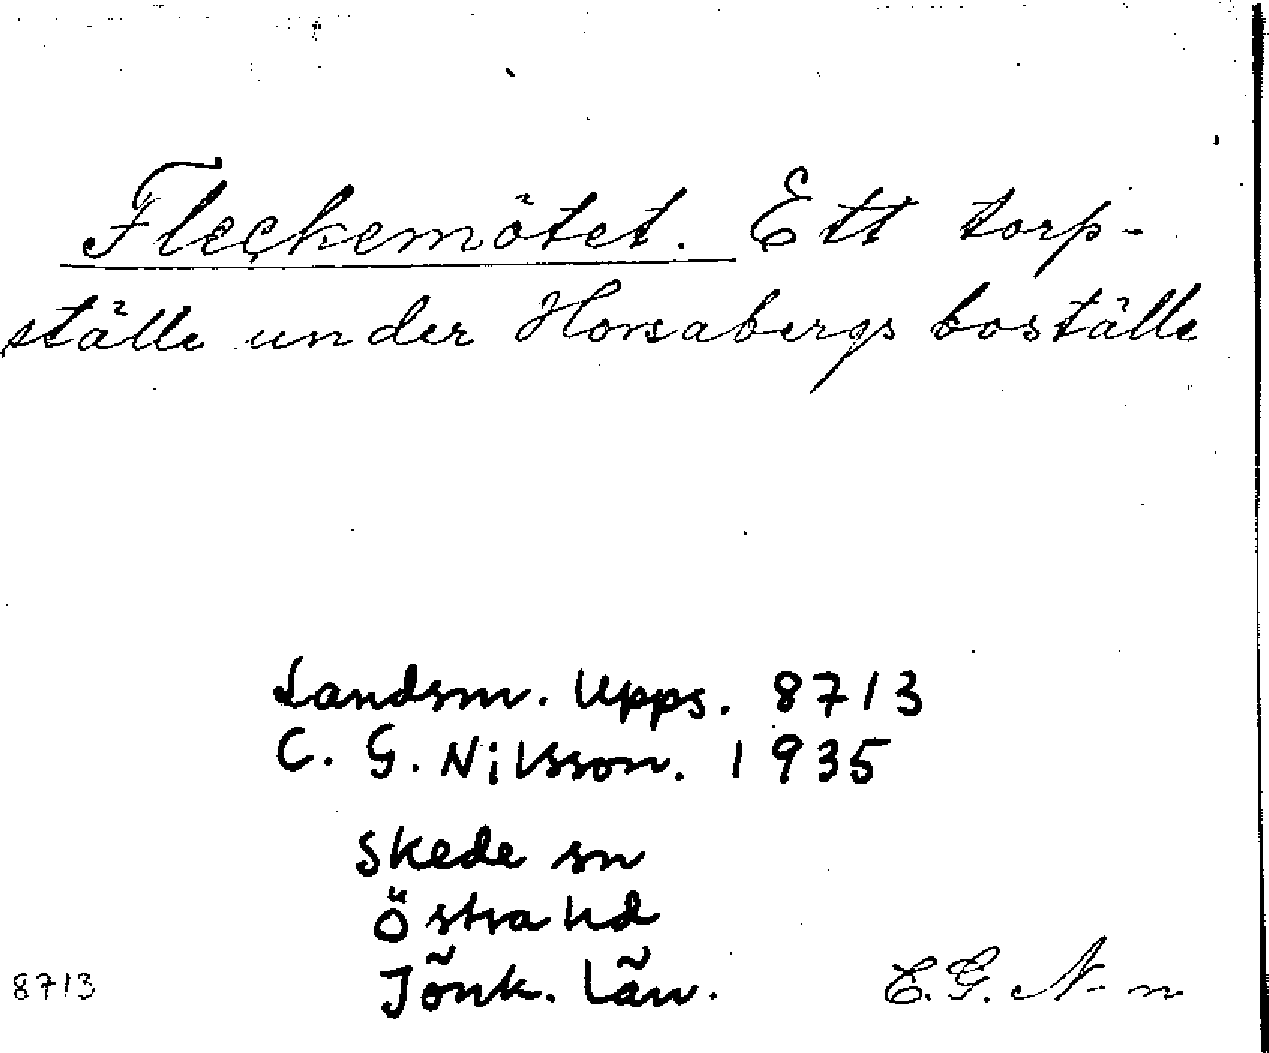 Fleckemötet. Ett torp-
ställe under Horsabergs boställe
Landsm. Upps. 8713
C. G. Nilsson. 1935
Skede sn
Östra hd
Jönk. län.
8713
C. G. N-n